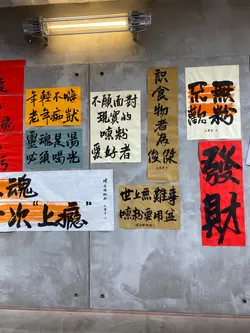 年輕不嗨
老年痴獃
靈魂是湯
必須喝光
不願面對
現實的
嗦粉
愛好者
識食物者為
俊傑
無粉
不歡
發財
魂
次“上瘾”
世上無難事
嗦粉要用盆